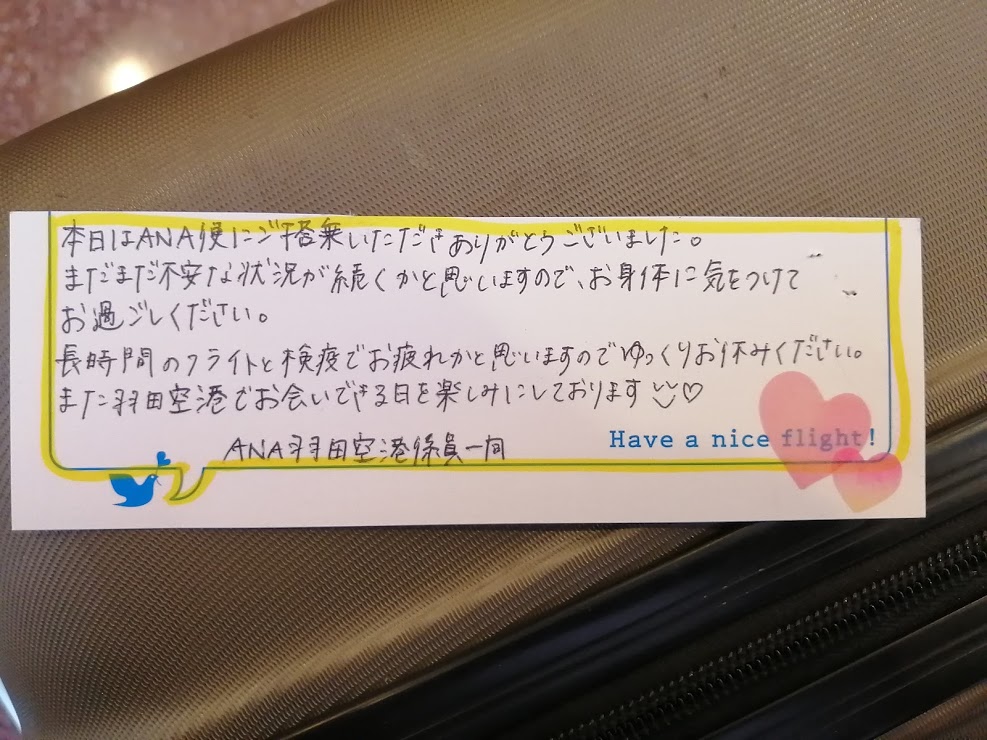 本日はANA便にご搭乗いただきありがとうございました。
まだまだ不安な状況が続くかと思いますので、お身体に気をつけて
お過ごしください。
長時間のフライトと検疫でお疲れかと思いますのでゆっくりお休みください。
また羽田空港でお会いできる日を楽しみにしております
ANA羽田空港係員一同
Have a nice flight!